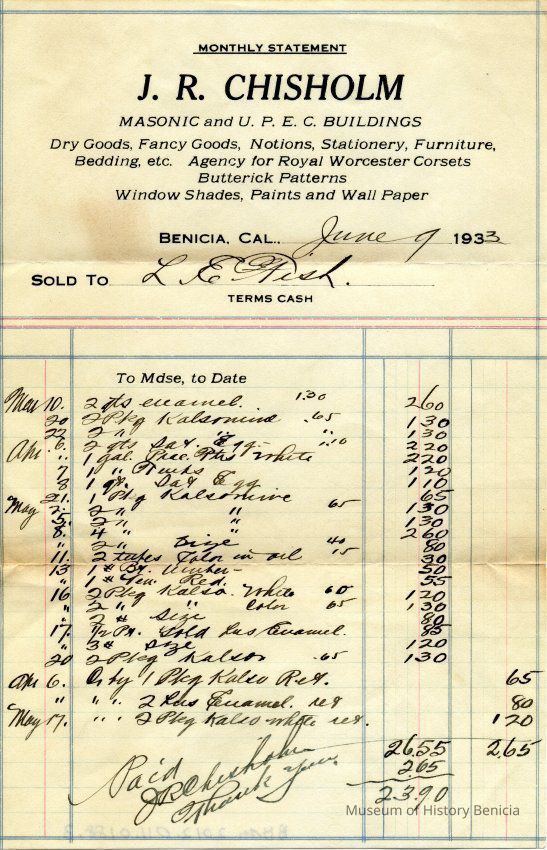 MONTHLY STATEMENT
J. R. CHISHOLM
MASONIC and U. P. E. C. BUILDINGS
Dry Goods, Fancy Goods, Notions, Stationery, Furniture,
Bedding, etc. Agency for Royal Worcester Corsets
Butterick Patterns
Window Shades, Paints and Wall Paper
BENICIA, CAL., June 9 1933
SOLD TO L E Fish.
TERMS CASH
To Mdse, to Date
Mar 10. 2 qts enamel. 1.30 260
20 2 Pkg Kalsomine .65 130
22 2 " " " 130
Apr 6. 2 qts Sat. Egg- 1.10 220
" 1 gal. White 220
7 1 " 120
8 1 qt. Sat Egg 110
21. 1 Pkg Kalsomine 65
May 2 " " 65 130
5 2 " " 130
8. 4 " " 260
" 2 " Size 40 80
11. 2 tubes Color in oil 15 30
13 1 # Umber- 50
" 1 # Red. 55
16 2 Pkg Kalso. White 60 120
" 2 " " Color 65 130
" 2 # Size 80
17. 1/2 Pt. Gold Lus Enamel. 85
" 3 # Size 120
20 2 Pkg Kalso .65 130
Apr 6. Cr by 1 Pkg Kalso Ret. 65
" " " 2 Lus Enamel. ret 80
May 17. " " 2 Pkg Kalso white ret. 120
2655 265
265
2390
Paid
JR Chisholm
Thank You
Museum of History Benicia